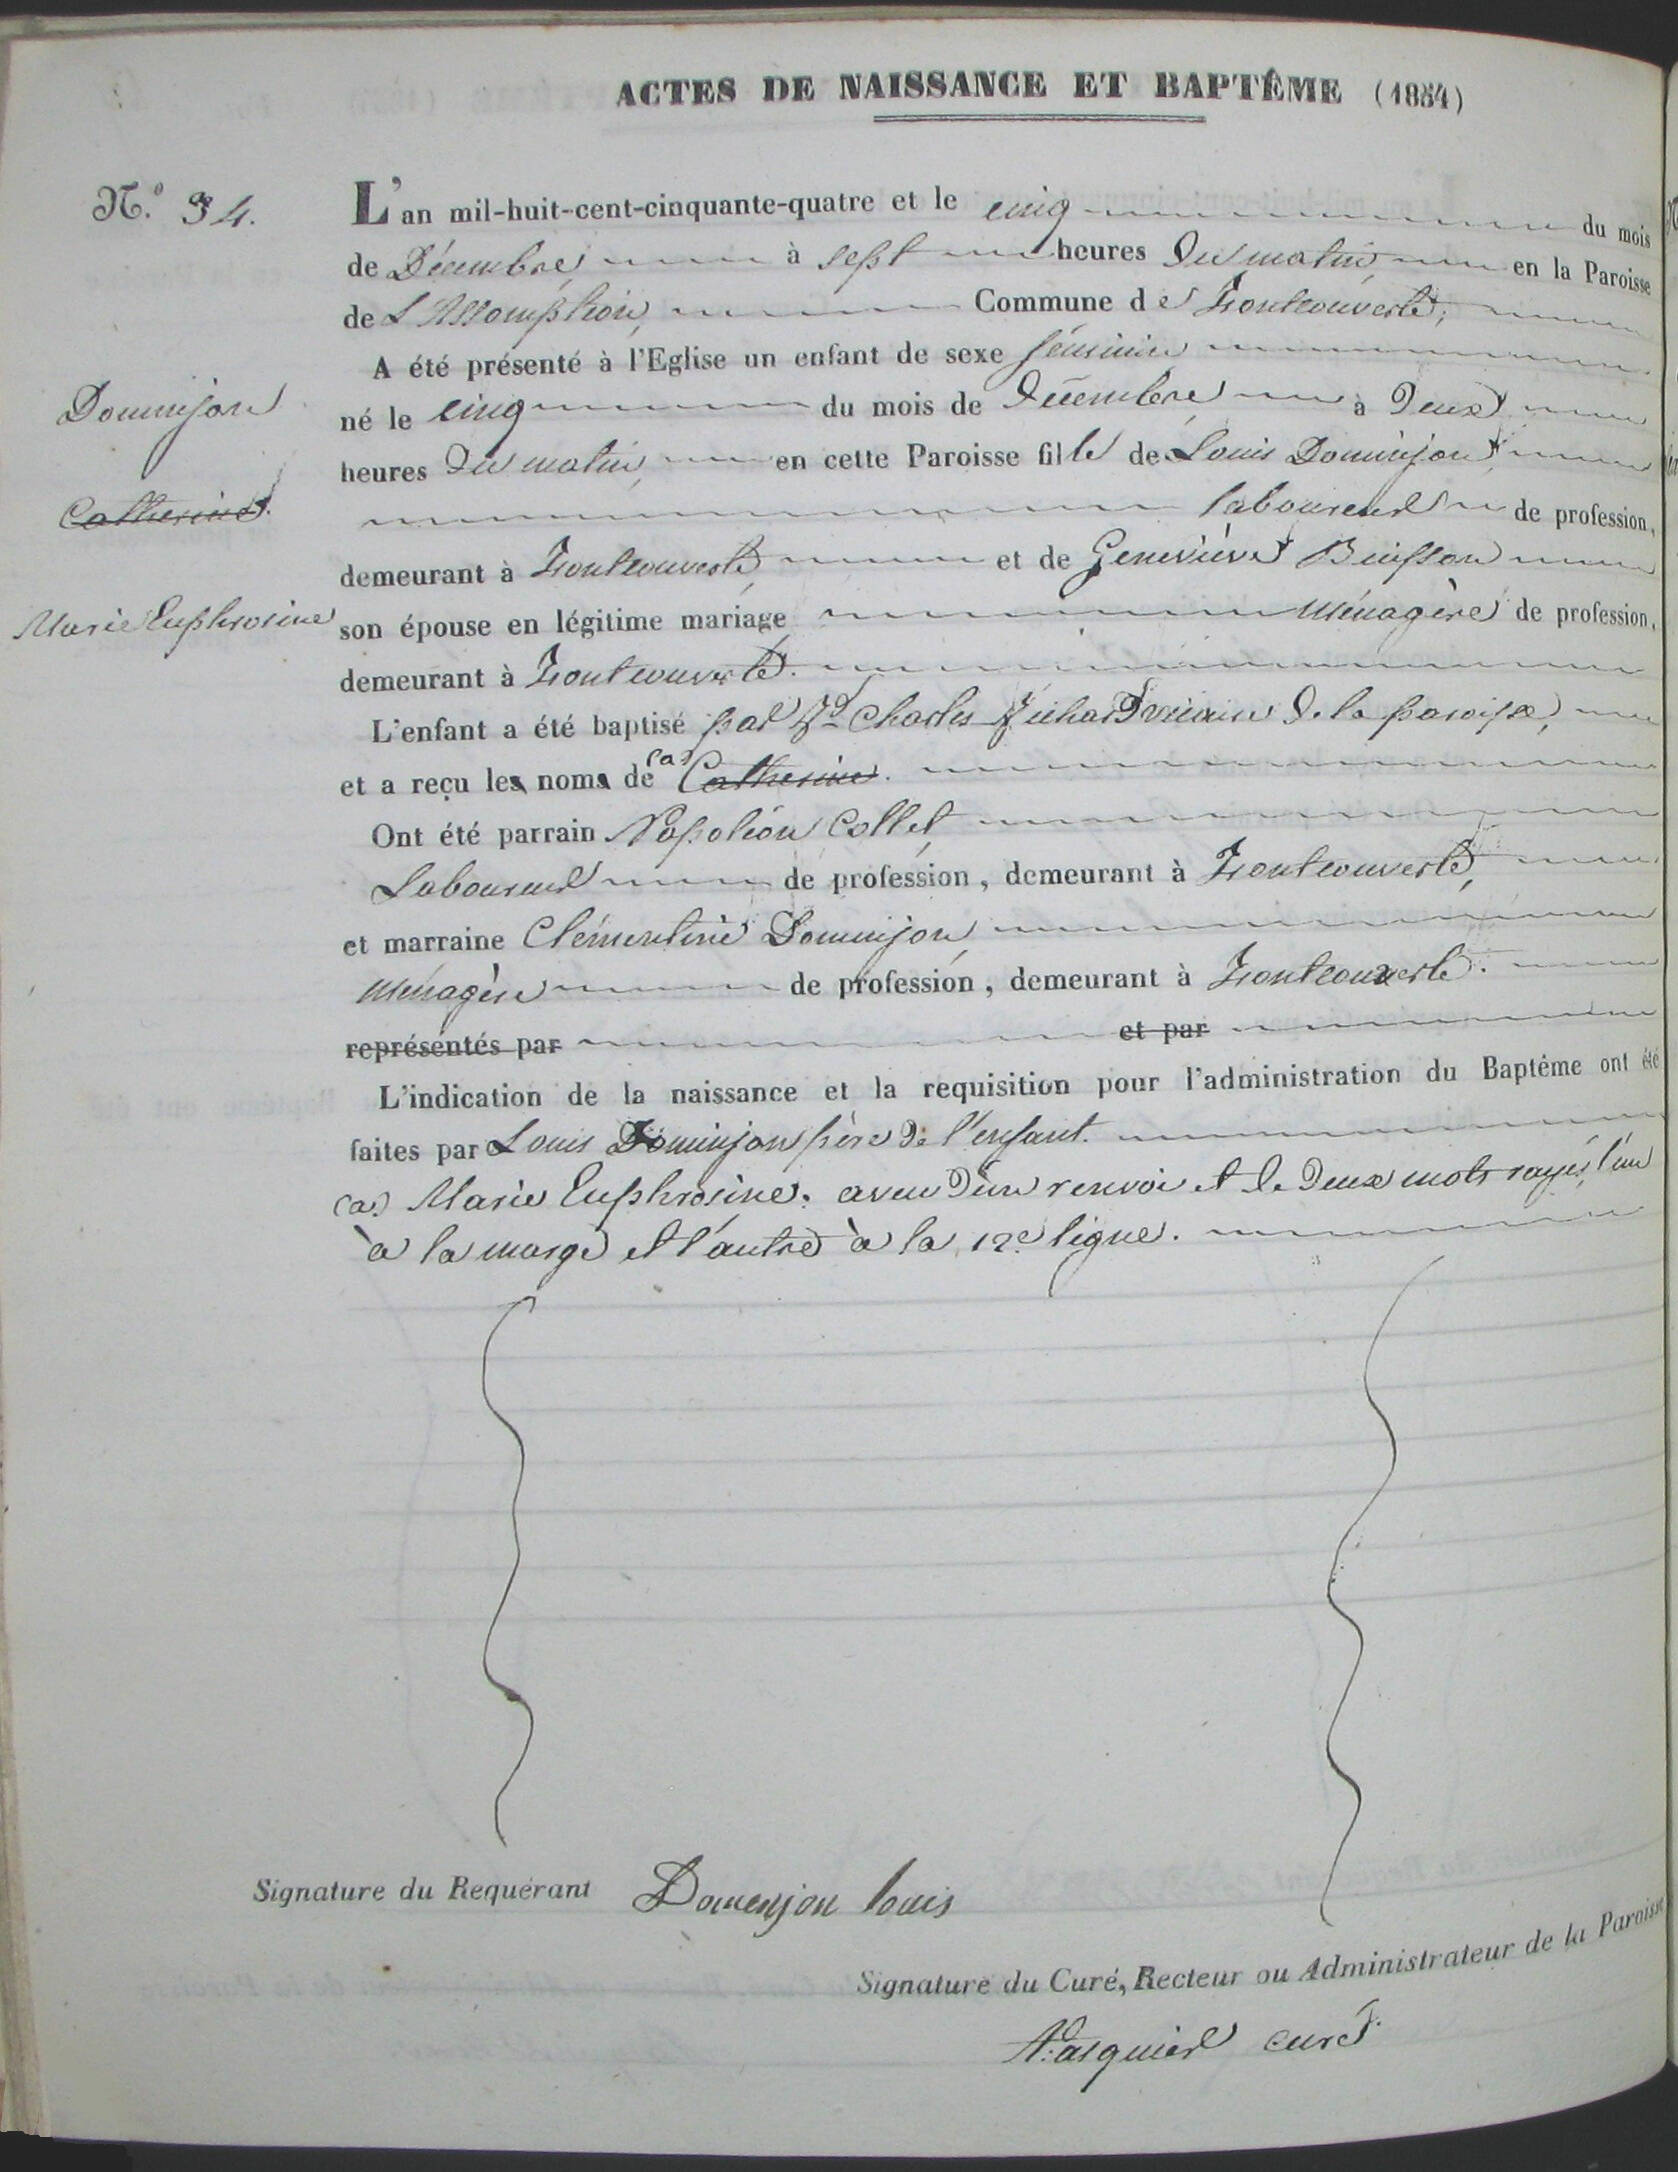 ACTES DE NAISSANCE ET BAPTÊME (1854)
N.º 34.
L'an mil-huit-cent-cinquante-quatre et le cinq du mois
de Décembre à sept heures du matin, en la Paroisse
de L'Assomption, Commune de Fontcouverte,
A été présenté à l'Eglise un enfant de sexe féminin
Dominjon
né le cinq du mois de Décembre à deux
heures du matin, en cette Paroisse fille de Louis Dominjon,
Catherine.
laboureur de profession,
demeurant à Fontcouverte, et de Geneviève Buisson
Marie Euphrosine
son épouse en légitime mariage ménagère de profession,
demeurant à Fontcouverte.
L'enfant a été baptisé par Rd Charles vicaire de la paroisse,
et a reçu les noms de (a) Catherine.
Ont été parrain Napoléon Collet,
Laboureur de profession, demeurant à Fontcouverte,
et marraine Clémentine Dominjon,
ménagère de profession, demeurant à Fontcouverte.
représentés par et par
L'indication de la naissance et la requisition pour l'administration du Baptême ont été
faites par Louis Dominjon père de l'enfant.
(a) Marie Euphrosine. avec d'un renvoi et de deux mots rayés, l'un
à la marge et l'autre à la 12e ligne.
Signature du Requérant Domenjon louis
Signature du Curé, Recteur ou Administrateur de la Paroisse
curé.